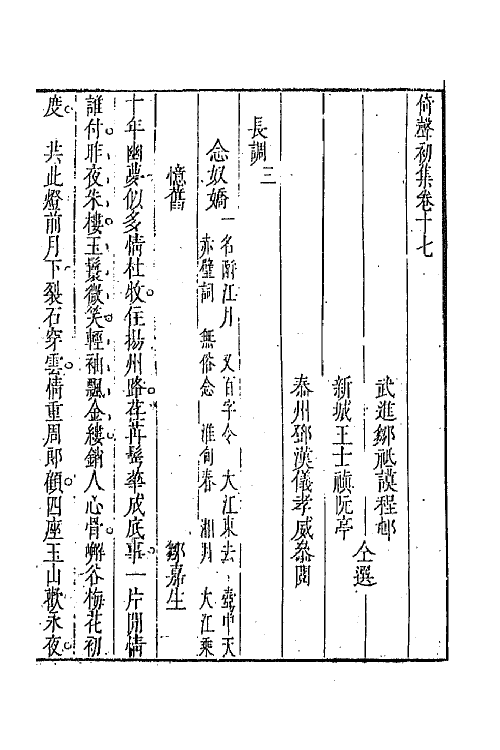 倚聲初集卷十七
武進鄒祗謨程邨
仝選
新城王士禎阮亭
泰州鄧漢儀孝威叅閱
長調三
念奴嬌 一名酹江月 又百字令 大江東去 壺中天
赤壁詞 無俗念 淮甸春 湘月 大江乘
憶舊 鄒嘉生
十年幽夢似多情杜牧往揚州路荏苒鬂華成底事一片閒情
誰付昨夜朱樓玉鬟微笑輕袖飄金縷銷人心骨嶰谷梅花初
度 共此燈前月下裂石穿雲情重周郎顧四座玉山欹永夜